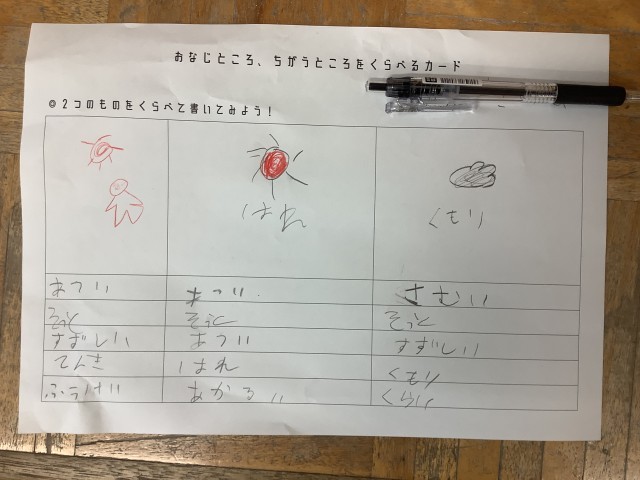 おなじところ、ちがうところをくらべるカード
◎2つのものをくらべて書いてみよう!
はれ くもり
あつい あつい さむい
そら そら そら
すずしい あつい すずしい
てんき はれ くもり
あかるい くらい